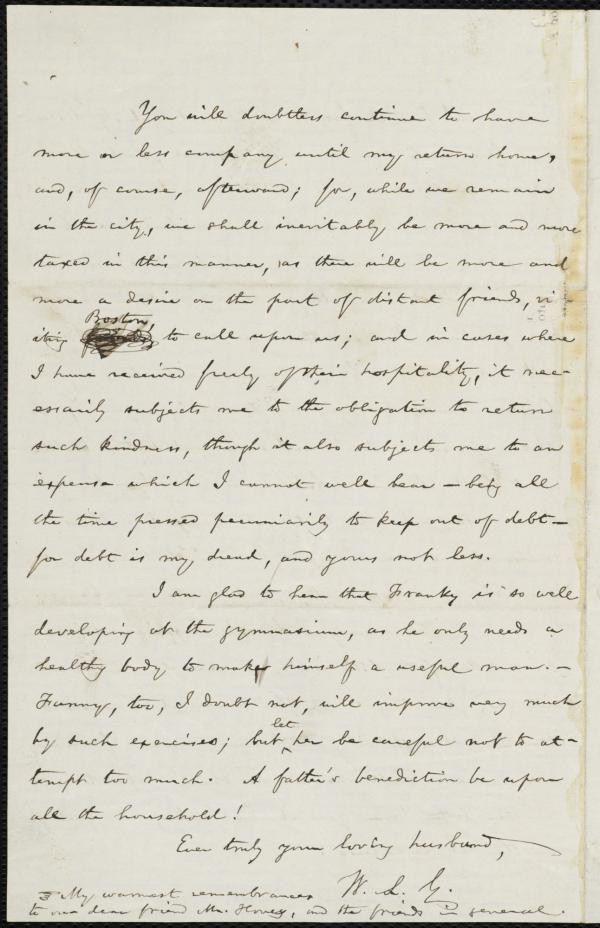 You will doubtless continue to have
more or less company until my return home,
and, of course, afterward; for, while we remain
in the city, we shall inevitably be more and more
taxed in this manner, as there will be more and
more a desire on the part of distant friends, vi-
Boston,
iting to call upon us; and in cases where
I have received freely of their hospitality, it nec-
essarily subjects me to the obligation to return
such kindness, though it also subjects me to an
expense which I cannot well bear — being all
the time pressed pecuniarily to keep out of debt —
for debt is my dread, and yours not less.
I am glad to hear that Franky is so well
developing at the gymnasium, as he only needs a
healthy body to make himself a useful man. —
Fanny, too, I doubt not, will improve very much
let
by such exercises; but her be careful not to at-
tempt too much. A father's benediction be upon
all the household!
Ever truly your loving husband,
W. L. G.
My warmest remembrances
to our dear friend Mr. and the friends in general.